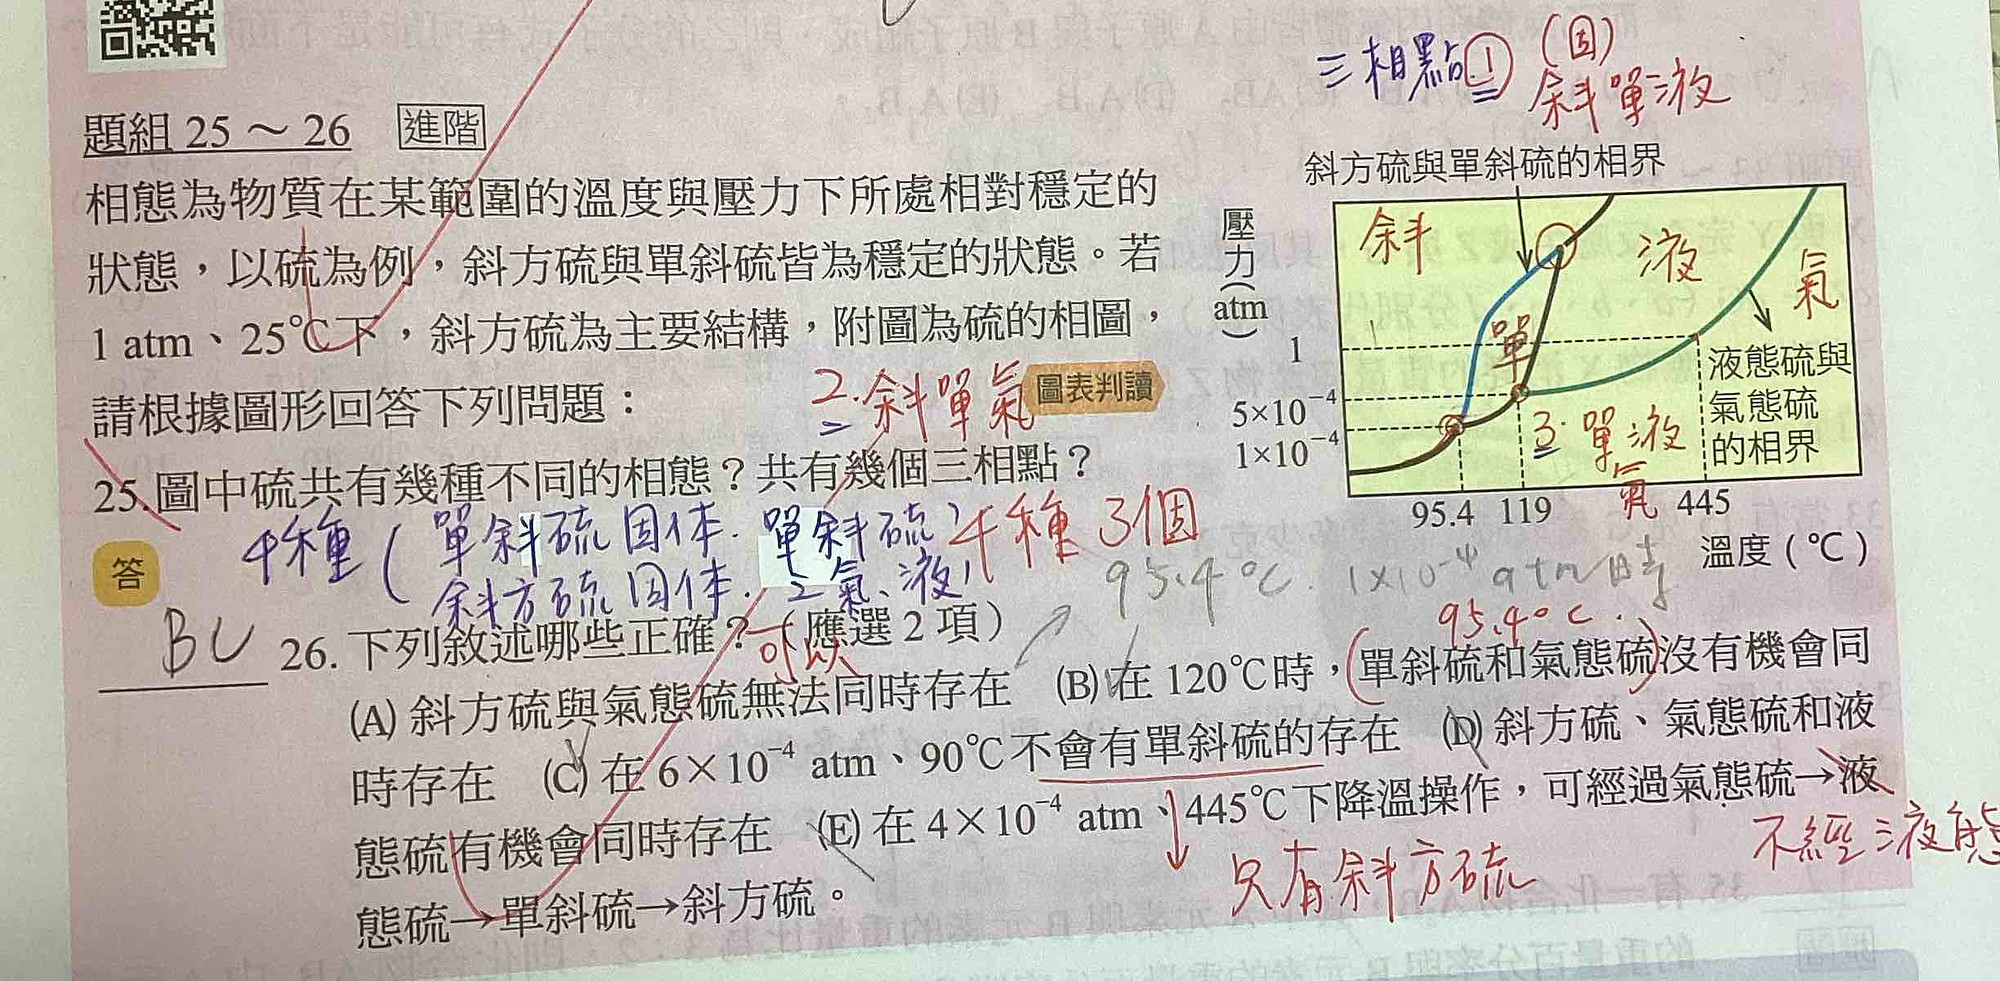 三相點1 (固)
斜單液
題組 25 ～ 26 進階
相態為物質在某範圍的溫度與壓力下所處相對穩定的
狀態，以硫為例，斜方硫與單斜硫皆為穩定的狀態。若
1 atm、25℃下，斜方硫為主要結構，附圖為硫的相圖，
請根據圖形回答下列問題：
2.斜單氣
圖表判讀
斜方硫與單斜硫的相界
壓力(atm)
斜
液
氣
單
1
5×10⁻⁴
1×10⁻⁴
液態硫與
氣態硫
的相界
3.單液
氣
95.4 119 445
溫度（℃）
25.圖中硫共有幾種不同的相態？共有幾個三相點？
答
4種(單斜硫固体.單斜硫
斜方硫固体. 氣、液)
4種 3個
95.4℃. 1×10⁻⁴ atm時
95.4℃.
BC
26. 下列敘述哪些正確？（應選 2 項）
可以
(A) 斜方硫與氣態硫無法同時存在 (B) 在 120℃時，單斜硫和氣態硫沒有機會同
時存在 (C) 在 6×10⁻⁴ atm、90℃不會有單斜硫的存在 (D) 斜方硫、氣態硫和液
態硫有機會同時存在 (E) 在 4×10⁻⁴ atm、445℃下降溫操作，可經過氣態硫→液
態硫→單斜硫→斜方硫。
只有斜方硫
不經液態